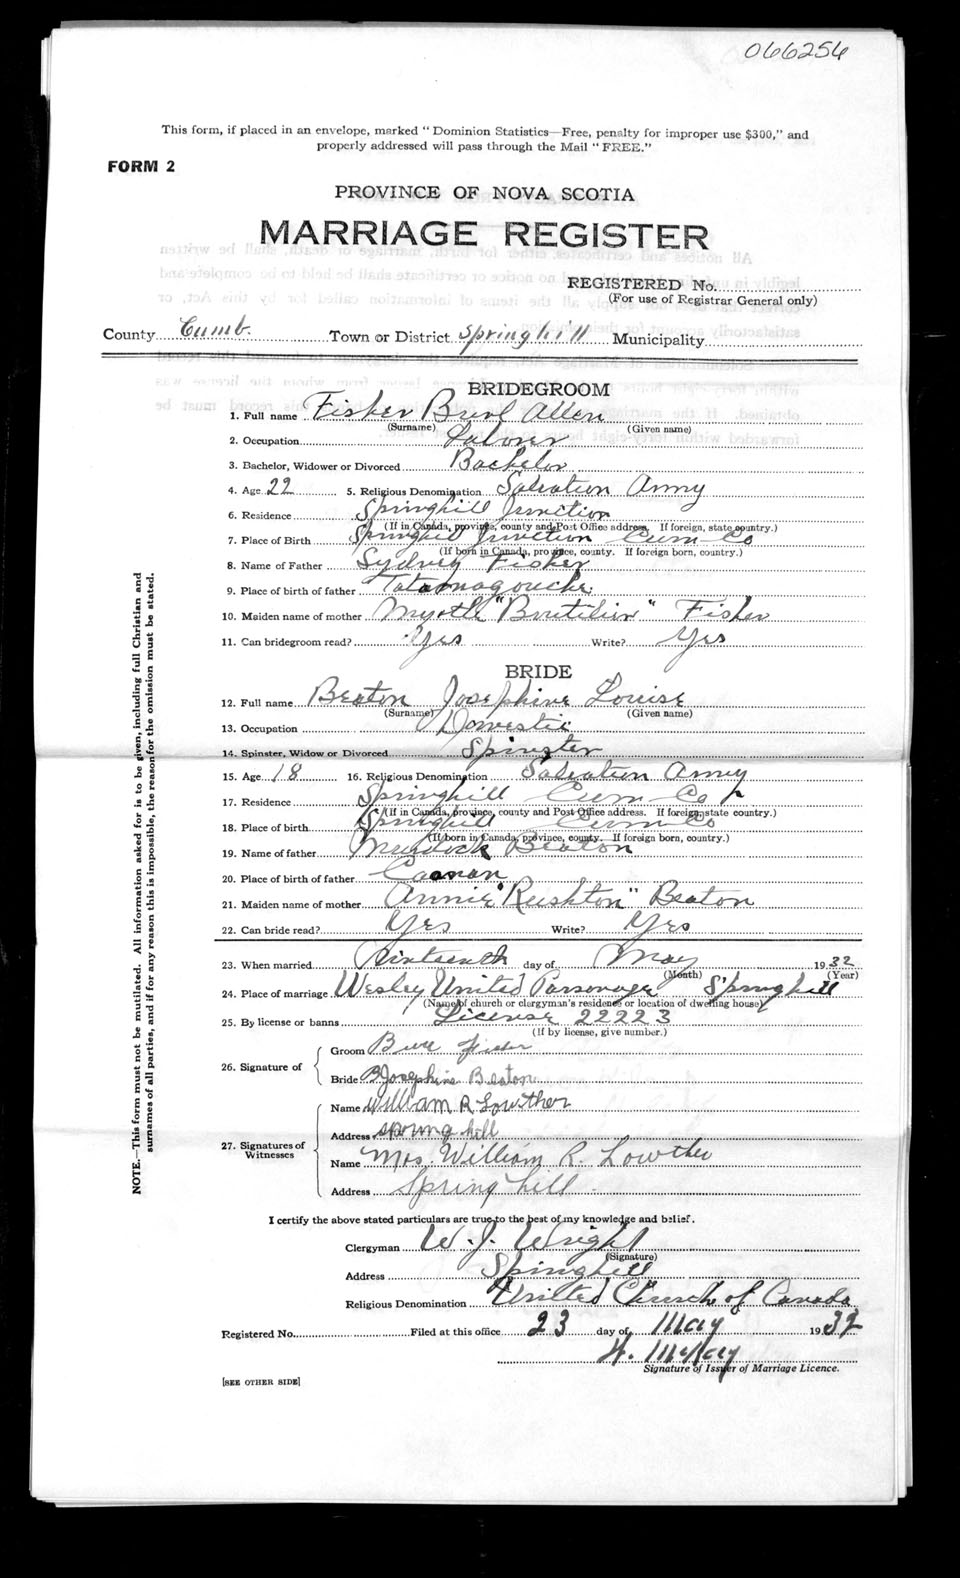 066256
This form, if placed in an envelope, marked " Dominion Statistics—Free, penalty for improper use $300," and
properly addressed will pass through the Mail " FREE."
FORM 2
PROVINCE OF NOVA SCOTIA
MARRIAGE REGISTER
REGISTERED No.
(For use of Registrar General only)
County Cumb. Town or District Springhill Municipality
BRIDEGROOM
1. Full name Fisher Burl Allen
(Surname) (Given name)
2. Occupation Laborer
3. Bachelor, Widower or Divorced Bachelor
4. Age 22 5. Religious Denomination Salvation Army
6. Residence Springhill Junction
(If in Canada, province, county and Post Office address. If foreign, state country.)
7. Place of Birth Springhill Junction Cum Co
(If born in Canada, province, county. If foreign born, country.)
8. Name of Father Sydney Fisher
9. Place of birth of father Tatamagouche
10. Maiden name of mother Myrtle "Boutilier" Fisher
11. Can bridegroom read? Yes Write? Yes
BRIDE
12. Full name Beaton Josephine Louise
(Surname) (Given name)
13. Occupation Domestic
14. Spinster, Widow or Divorced Spinster
15. Age 18 16. Religious Denomination Salvation Army
17. Residence Springhill Cum Co
(If in Canada, province, county and Post Office address. If foreign, state country.)
18. Place of birth Springhill Cum Co
(If born in Canada, province, county. If foreign born, country.)
19. Name of father Murdock Beaton
20. Place of birth of father Canan
21. Maiden name of mother Annie "Rushton" Beaton
22. Can bride read? Yes Write? Yes
23. When married day of May 1932
(Month) (Year)
24. Place of marriage Wesley United Parsonage Springhill
(Name of church or clergyman's residence or location of dwelling house)
25. By license or banns License 22223
(If by license, give number.)
26. Signature of
Groom Burl Fisher
Bride Josephine Beaton
27. Signatures of
Witnesses
Name William R Lowther
Address spring hill
Name Mrs. William R. Lowther
Address Spring hill
I certify the above stated particulars are true to the best of my knowledge and belief.
Clergyman W. J. Wright
(Signature)
Address Springhill
Religious Denomination United Church of Canada
Registered No. Filed at this office 23 day of May 1932
H. McKay
Signature of Issuer of Marriage Licence.
[SEE OTHER SIDE]
NOTE.—This form must not be mutilated. All information asked for is to be given, including full Christian and
surnames of all parties, and if for any reason this is impossible, the reason for the omission must be stated.